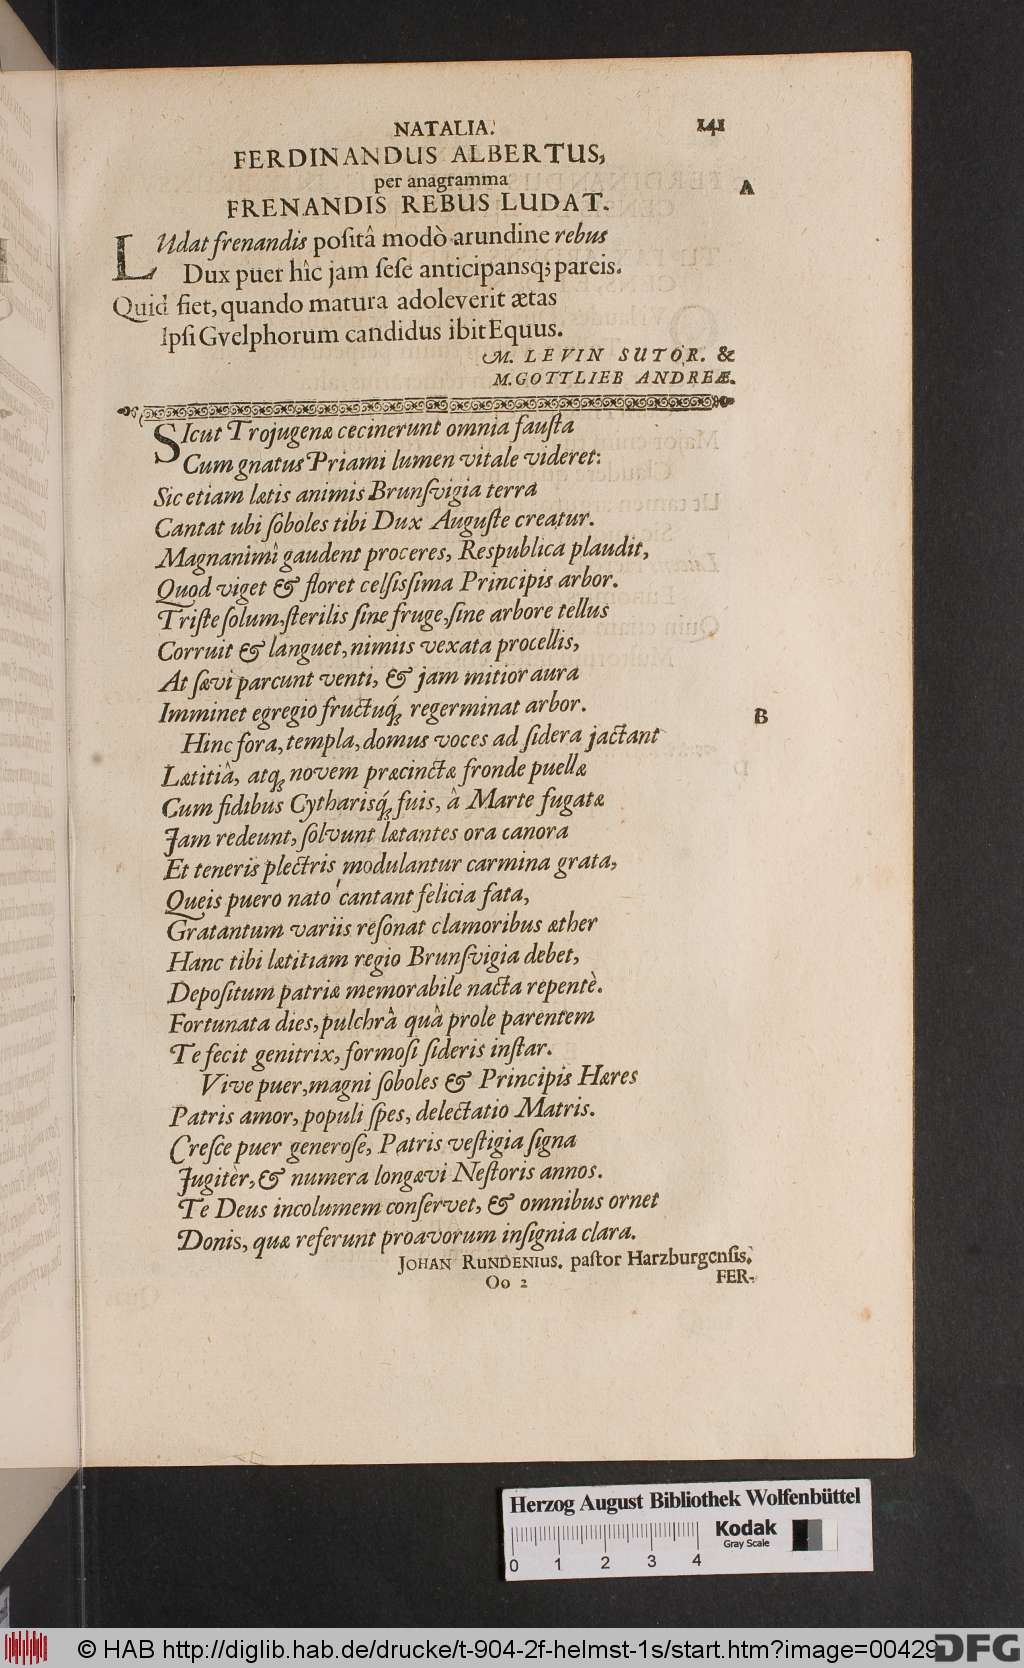 NATALIA. 141
FERDINANDUS ALBERTUS,
per anagramma
A
FRENANDIS REBUS LUDAT.
LUdat frenandis poſitâ modò arundine rebus
Dux puer hîc jam ſeſe anticipansq; pareis.
Quid fiet, quando matura adoleverit ætas
Ipſi Gvelphorum candidus ibit Equus.
M. LEVIN SUTOR. &
M. GOTTLIEB ANDREÆ.
SIcut Trojugenæ cecinerunt omnia fauſta
Cum gnatus Priami lumen vitale videret:
Sic etiam lætis animis Brunſvigia terra
Cantat ubi ſoboles tibi Dux Auguſte creatur.
Magnanimi gaudent proceres, Respublica plaudit,
Quod viget & floret celſiſſima Principis arbor.
Triſte ſolum, ſterilis ſine fruge, ſine arbore tellus
Corruit & languet, nimiis vexata procellis,
At ſævi parcunt venti, & jam mitior aura
Imminet egregio fructuq́; regerminat arbor.
B
Hinc fora, templa, domus voces ad ſidera jactant
Lætitiâ, atq; novem præcinctæ fronde puellæ
Cum fidibus Cytharisq́; ſuis, â Marte fugatæ
Jam redeunt, ſolvunt lætantes ora canora
Et teneris plectris modulantur carmina grata,
Queis puero nato cantant felicia fata,
Gratantum variis reſonat clamoribus æther
Hanc tibi lætitiam regio Brunſvigia debet,
Depoſitum patriæ memorabile nacta repentè.
Fortunata dies, pulchrâ quâ prole parentem
Te fecit genitrix, formoſi ſideris inſtar.
Vive puer, magni ſoboles & Principis Hæres
Patris amor, populi ſpes, delectatio Matris.
Creſce puer generoſe, Patris veſtigia ſigna
Jugitèr, & numera longævi Neſtoris annos.
Te Deus incolumem conſervet, & omnibus ornet
Donis, quæ referunt proavorum inſignia clara.
JOHAN RUNDENIUS. paſtor Harzburgenſis.
Oo 2 FER-
Herzog August Bibliothek Wolfenbüttel
Kodak
Gray Scale
0 1 2 3 4
© HAB http://diglib.hab.de/drucke/t-904-2f-helmst-1s/start.htm?image=00429
DFG